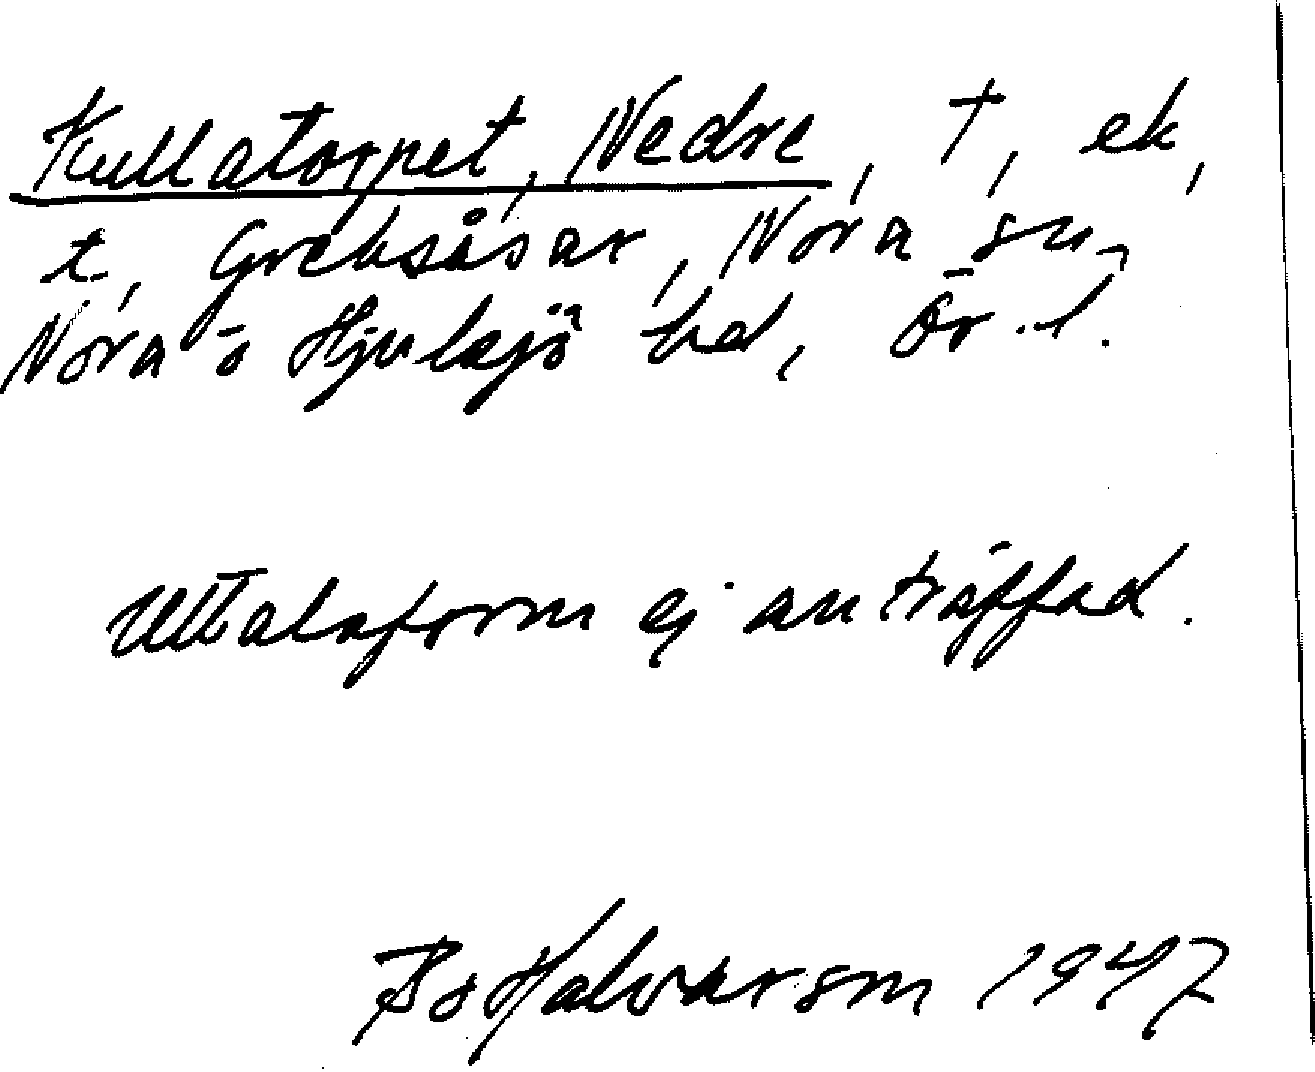 Kullatorpet, Nedre, †, ek,
t. Greksåsar, Nora sn,
Nora o Hjulsjö bd, Ör. l.
Uttalsform ej anträffad.
Bo Halvarson 1947